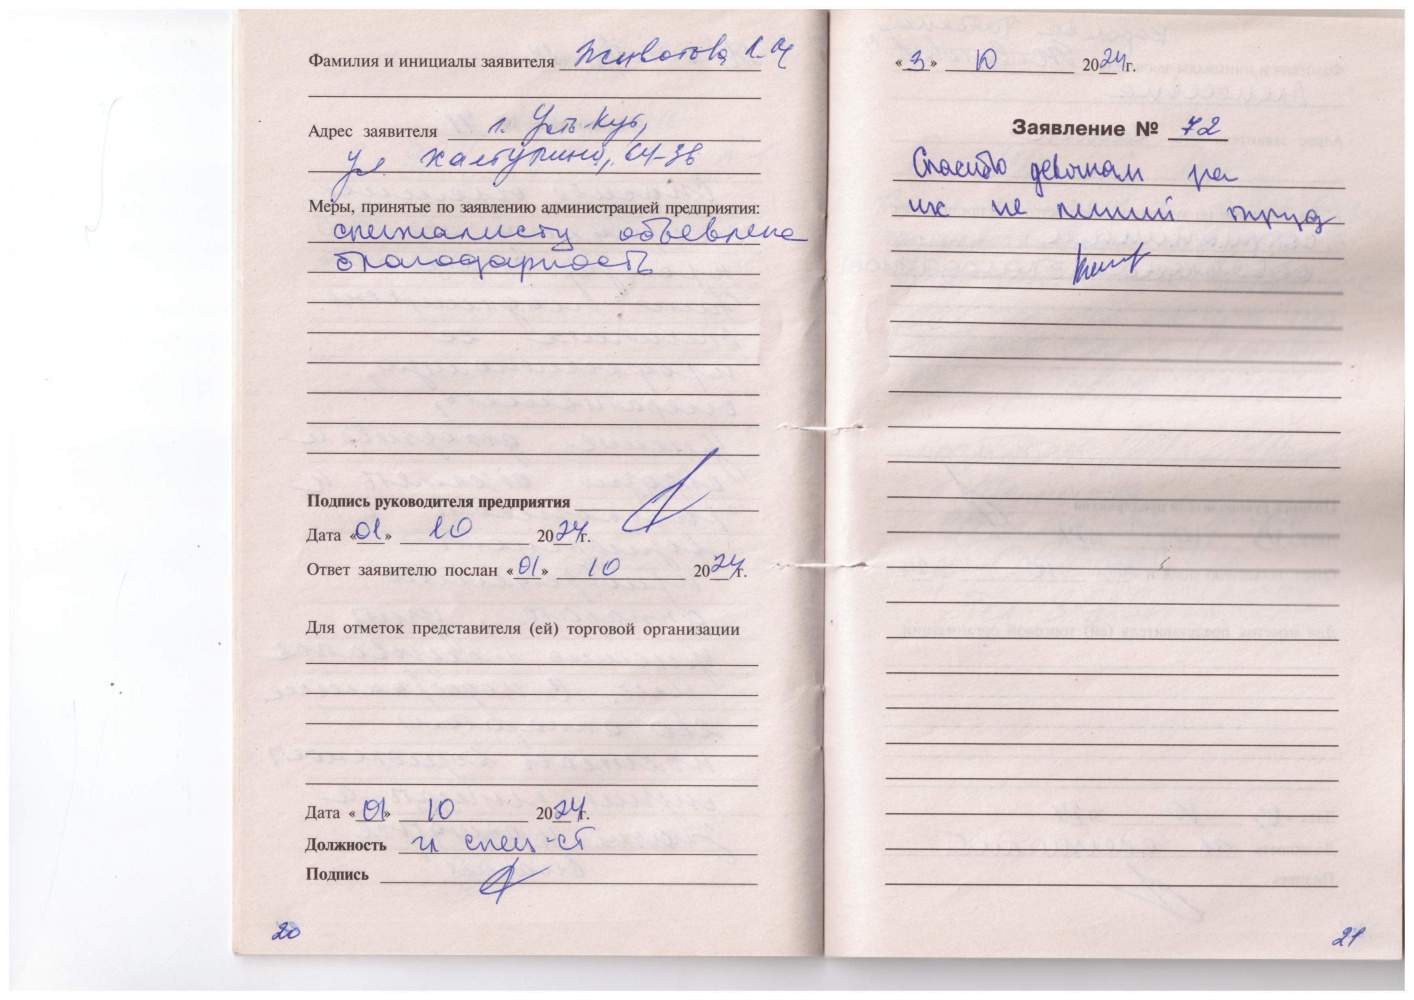 Фамилия и инициалы заявителя Животова Л.И
Адрес заявителя г. Усть-Кут,
ул. Халтурина, 64-38
Меры, принятые по заявлению администрацией предприятия:
специалисту объевлена
благодарность
Подпись руководителя предприятия
Дата «01» 10 2024 г.
Ответ заявителю послан «01» 10 2024 г.
Для отметок представителя (ей) торговой организации
Дата «01» 10 2024 г.
Должность гл спец-ст
Подпись
20
«3» 10 2024 г.
Заявление № 72
Спасибо девочкам за
их не легкий труд
21